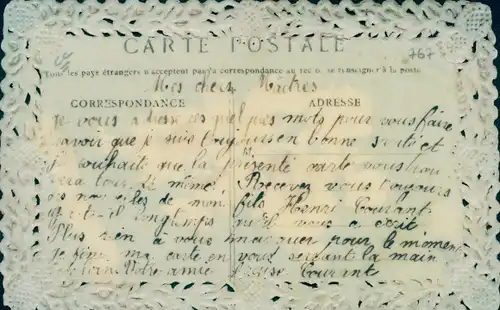 CARTE POSTALE
767
Tous les pays étrangers n'acceptent pas la correspondance au recto, se renseigner à la poste
Mes chers Maîtres
CORRESPONDANCE
ADRESSE
Je vous adresse ces quelques mots pour vous faire
savoir que je suis toujours en bonne santé et
je souhait que la présente carte vous trou
vera tous de même. Recevez vous toujours
des nouvelles de mon fils Henri Courant
y a-t-il longtemps qu'il vous a écrit
Plus rien a vous marquer pour le moment
je fini ma carte en vous serrant la main
de loin Votre amie Courant